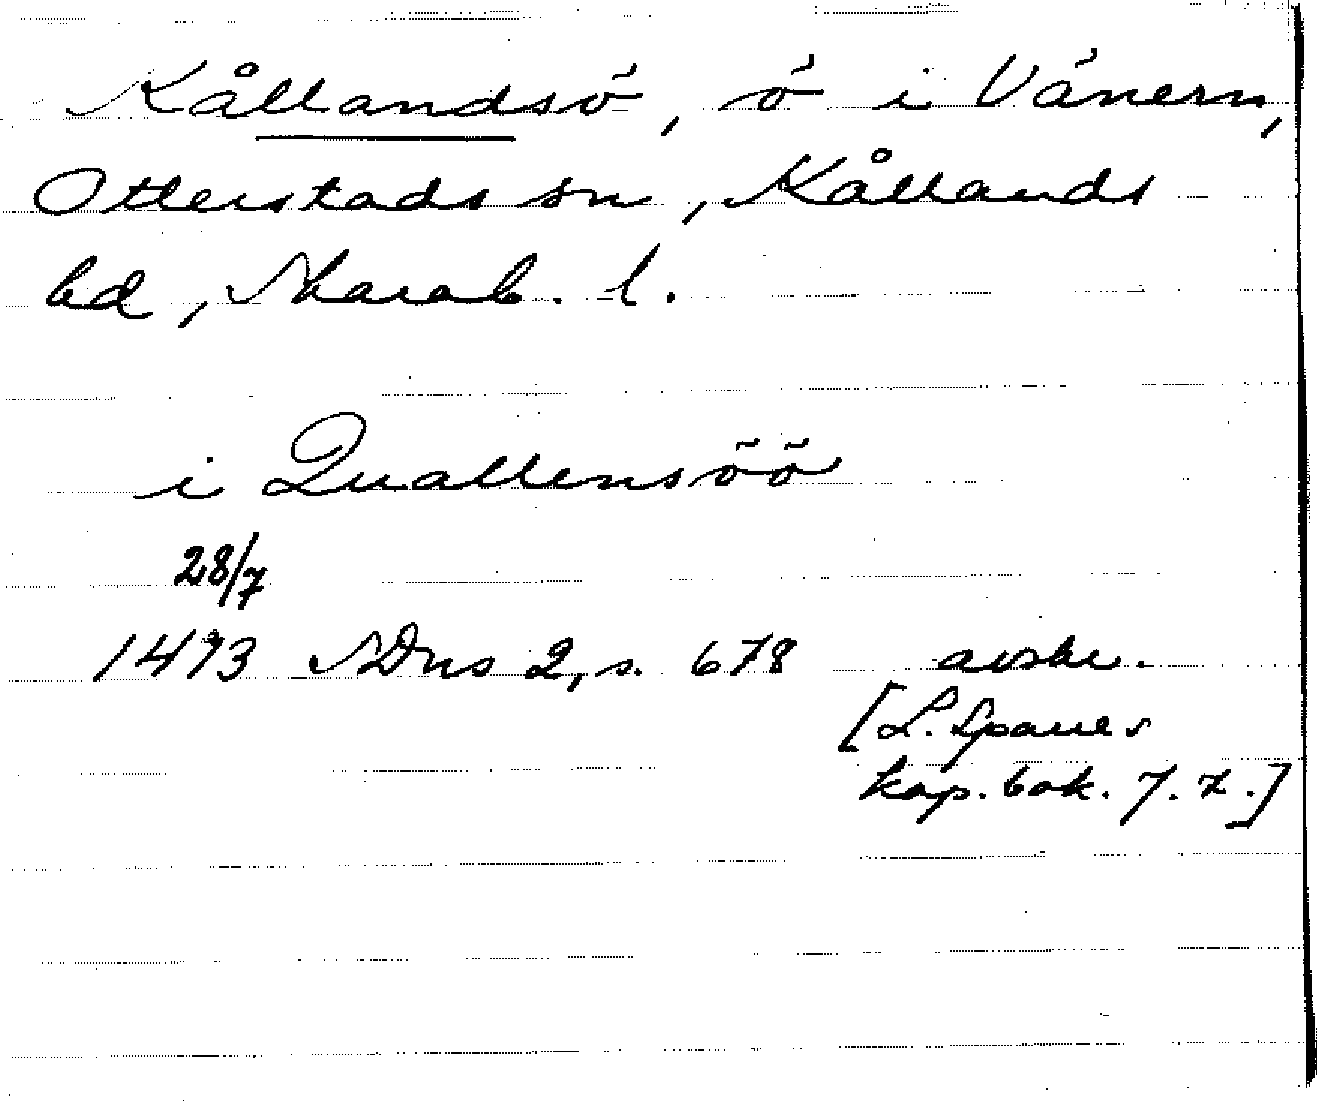 Kållandsö, ö i Vänern,
Otterstads sn, Kållands
hd, Skarab. l.
i Quallensöö
28/7
1493 SDns 2, s. 678 avskr.
[L. Spaues
kop. bok. 7. 7.]